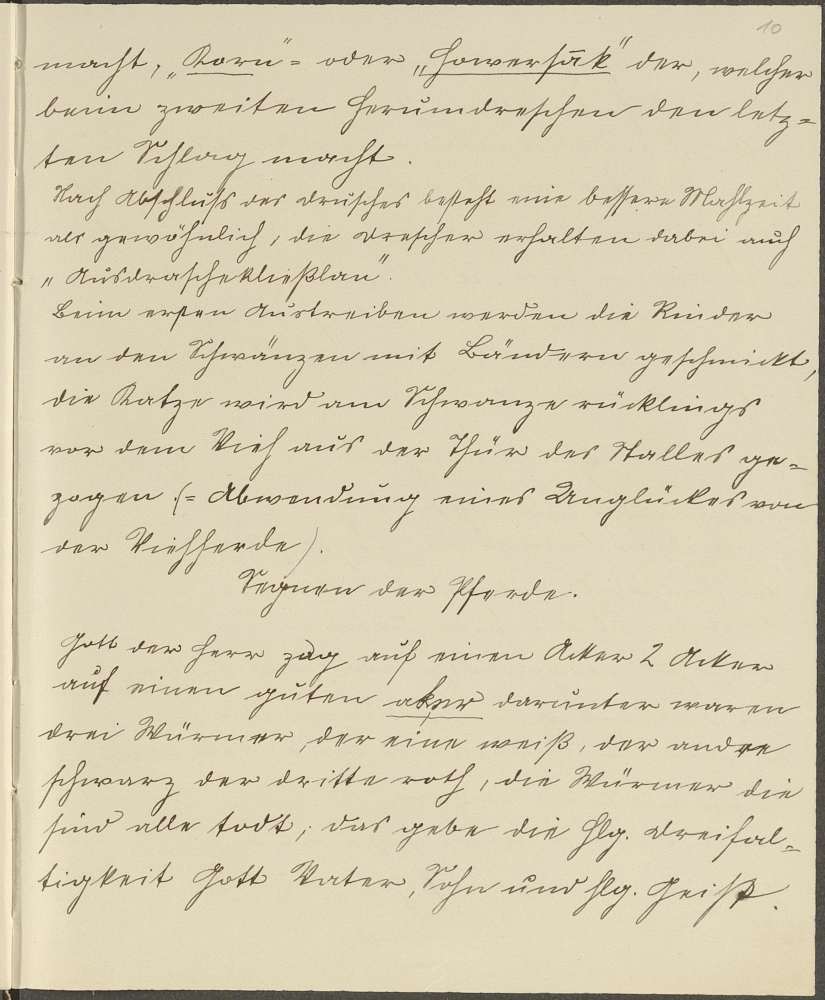 10
macht, „Korn“ = oder „Howersåk“ der, welcher
beim zweiten Herumdreschen den letz=
ten Schlag macht.
Nach Abschluss des Drusches besteht eine bessere Mahlzeit
als gewöhnlich, die Drescher erhalten dabei auch
„Ausdrascheließlan“.
Beim ersten Austreiben werden die Rinder
an den Schwänzen mit Bändern geschmückt,
die Katze wird am Schwanze rücklings
vor dem Vieh aus der Thür des Stalles ge=
zogen (= Abwendung eines Unglückes von
der Viehherde).
Segnen der Pferde.
Gott der Herr zug auf einen Acker 2 Acker
auf einen guten aker darunter waren
drei Würmer, der eine weiß, der andre
schwarz der dritte roth, die Würmer die
sind alle todt, das gebe die hlg. Dreifal=
tigkeit Gott Vater, Sohn und hlg. Geist.